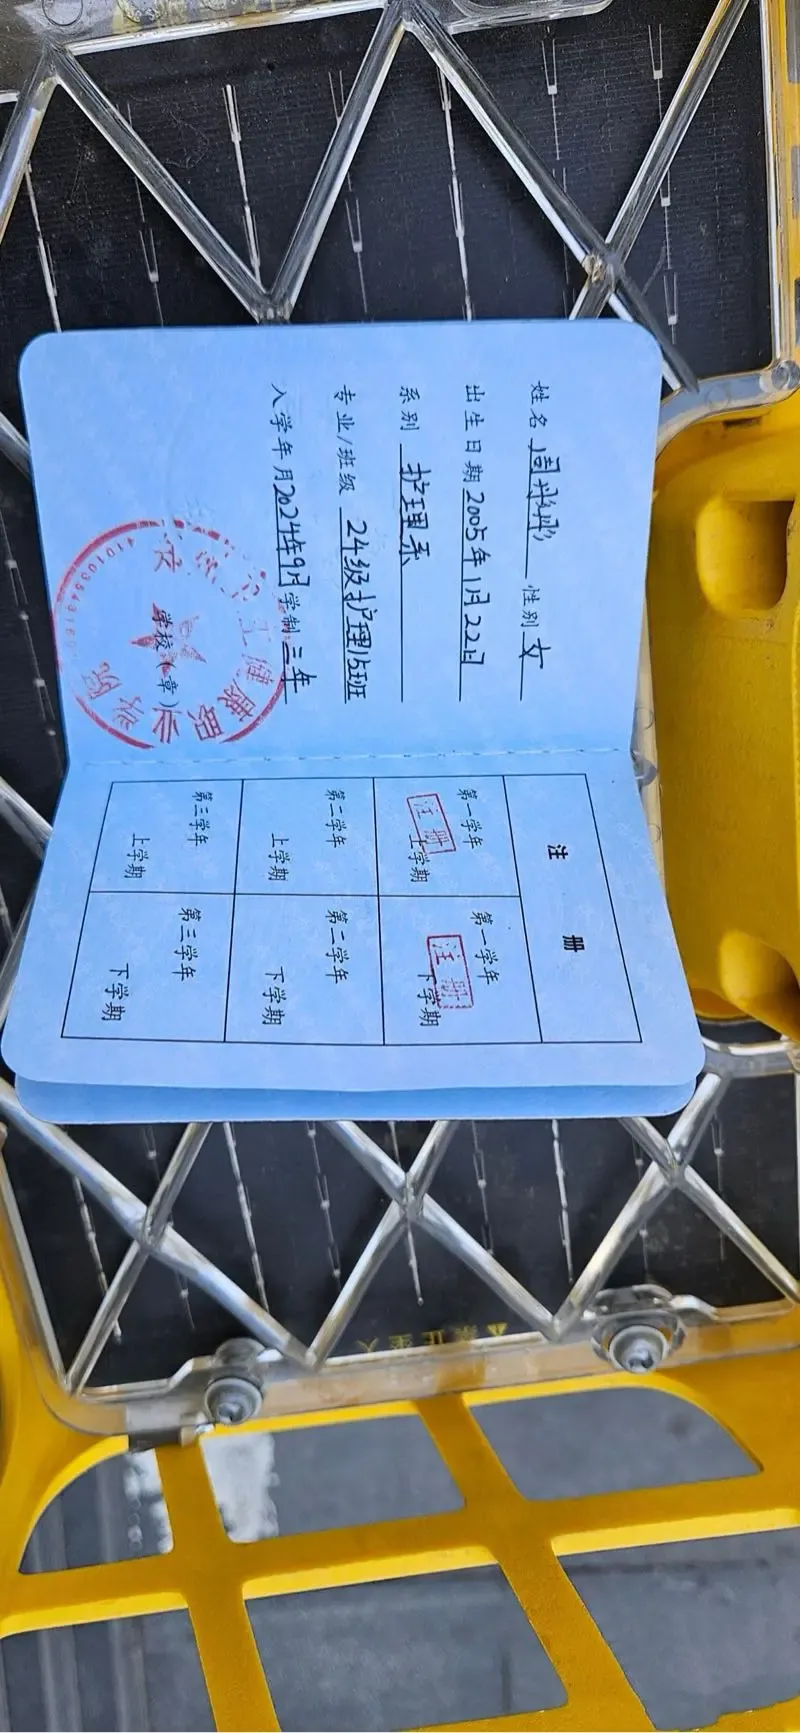 姓名 周彤彤 性别 女
出生日期 2005年1月22日
系别 护理系
专业/班级 24级护理15班
入学年月 2024年9月 学制 三年
学校(章)
注 册
第一学年 上学期
注 册
第一学年 下学期
注 册
第二学年 上学期
第二学年 下学期
第三学年 上学期
第三学年 下学期
禁止坐人